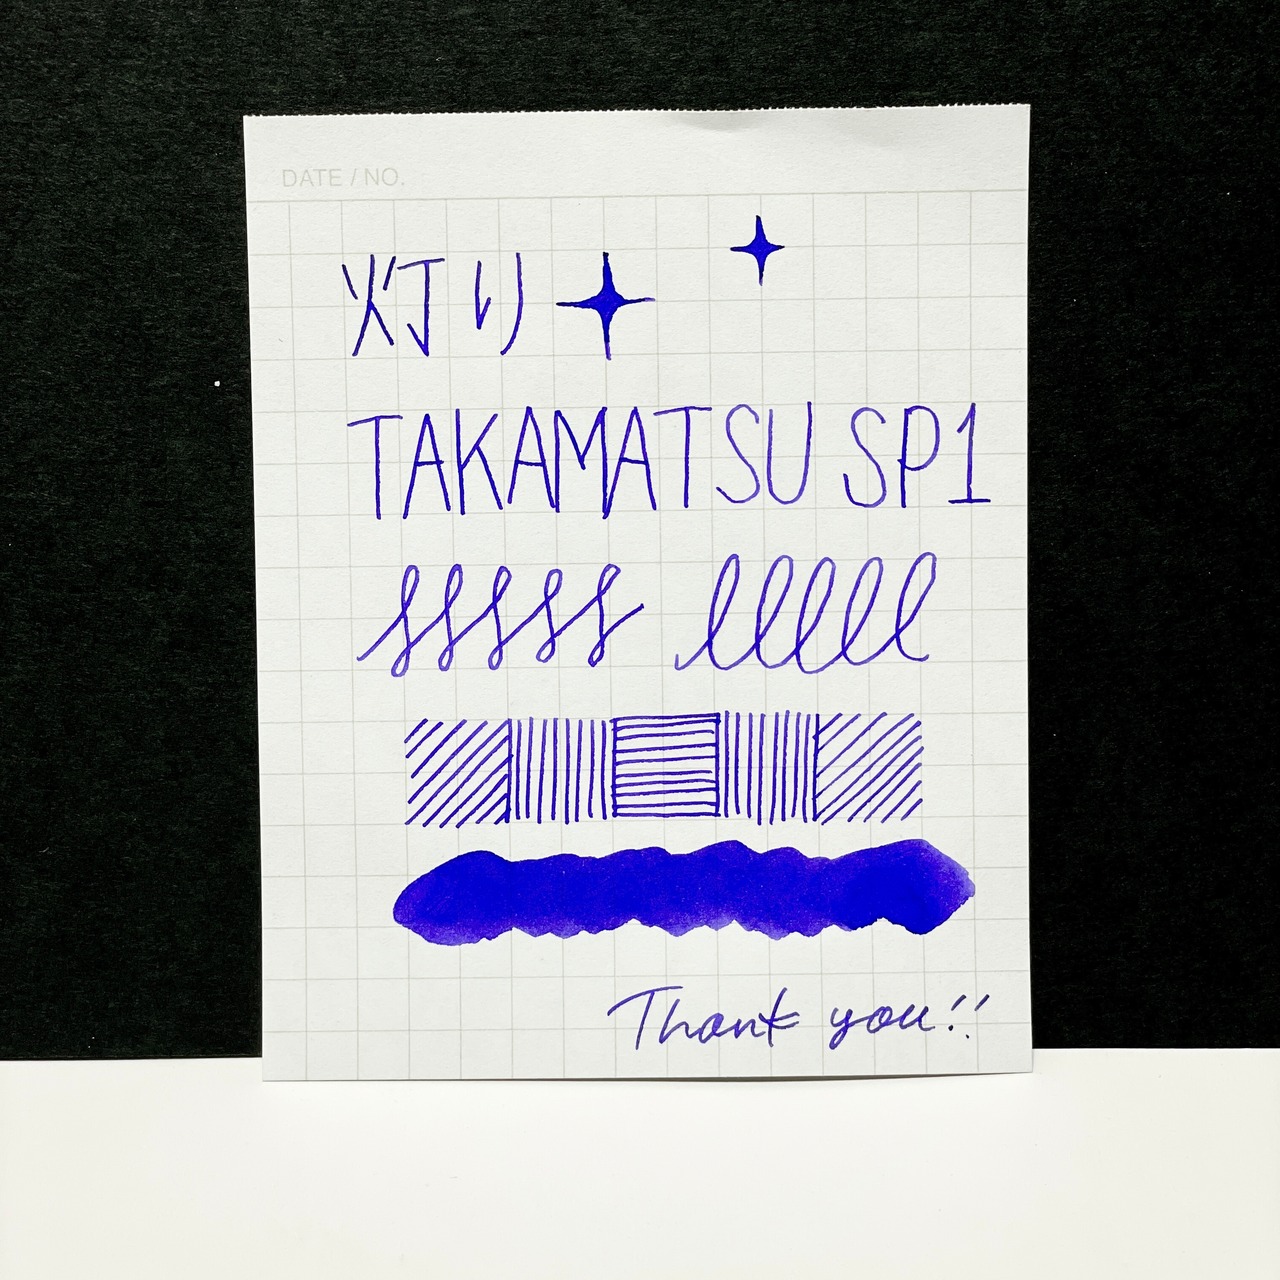 DATE / NO.
灯り
TAKAMATSU SP1
sssss lllll
Thank you!!